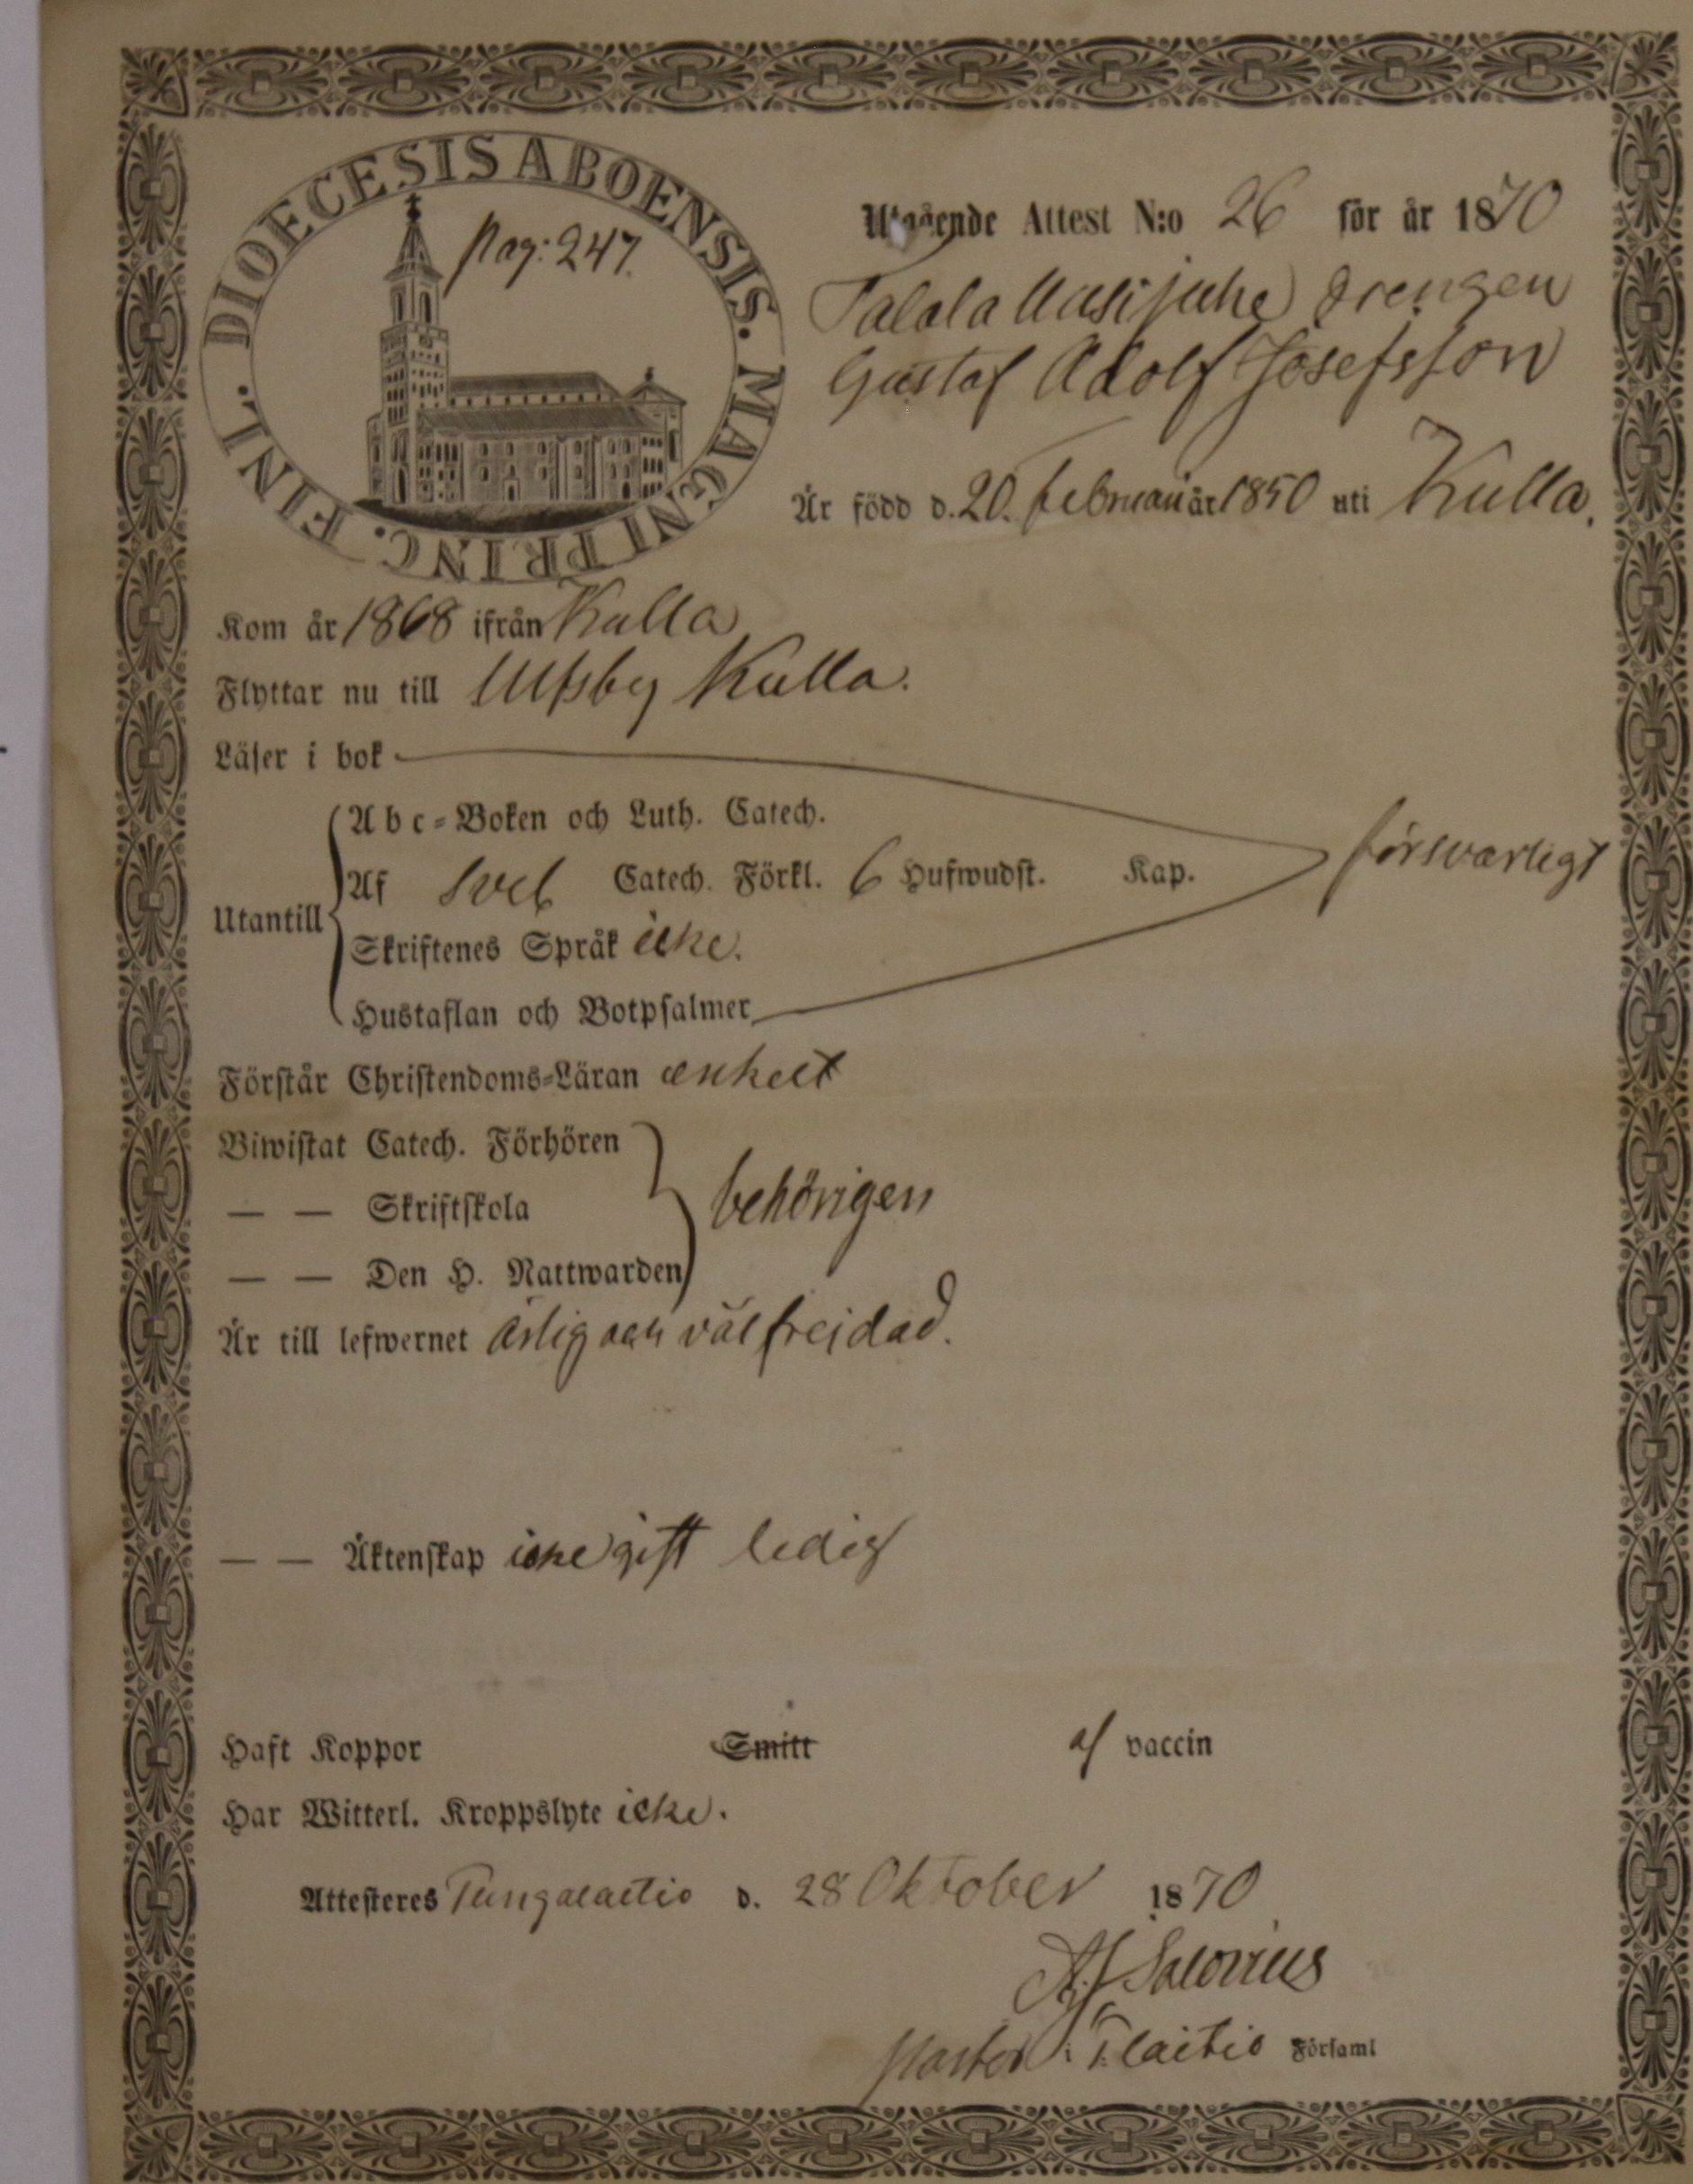 DIOECESIS ABOENSIS. MAGNI PRINC. FINL.
Pag: 247.
Utgående Attest N:o 26 för år 1870
Talala Uusijuhe drengen
Gustaf Adolf Josefsson
Är född d. 20. februari år 1850 uti Kulla.
Kom år 1868 ifrån Kulla
Flyttar nu till Ulfsby Kulla.
Läser i bok
Abc-Boken och Luth. Catech.
försvarligt
Af Sveb Catech. Förkl. 6 Hufwudst. Kap.
Utantill
Skriftenes Språk icke.
Hustaflan och Botpsalmer
Förstår Christendoms-Läran enkelt
Biwistat Catech. Förhören
— — Skriftskola behörigen
— — Den H. Nattwarden
Är till lefwernet ärlig och väl frejdad.
— — Äktenskap icke gift ledig
Haft Koppor Smitt af vaccin
Har Witterl. Kroppslyte icke.
Attesteres Pungalaitio d. 28 Oktober 1870
Salovius
Pastor i P. laitio Församl